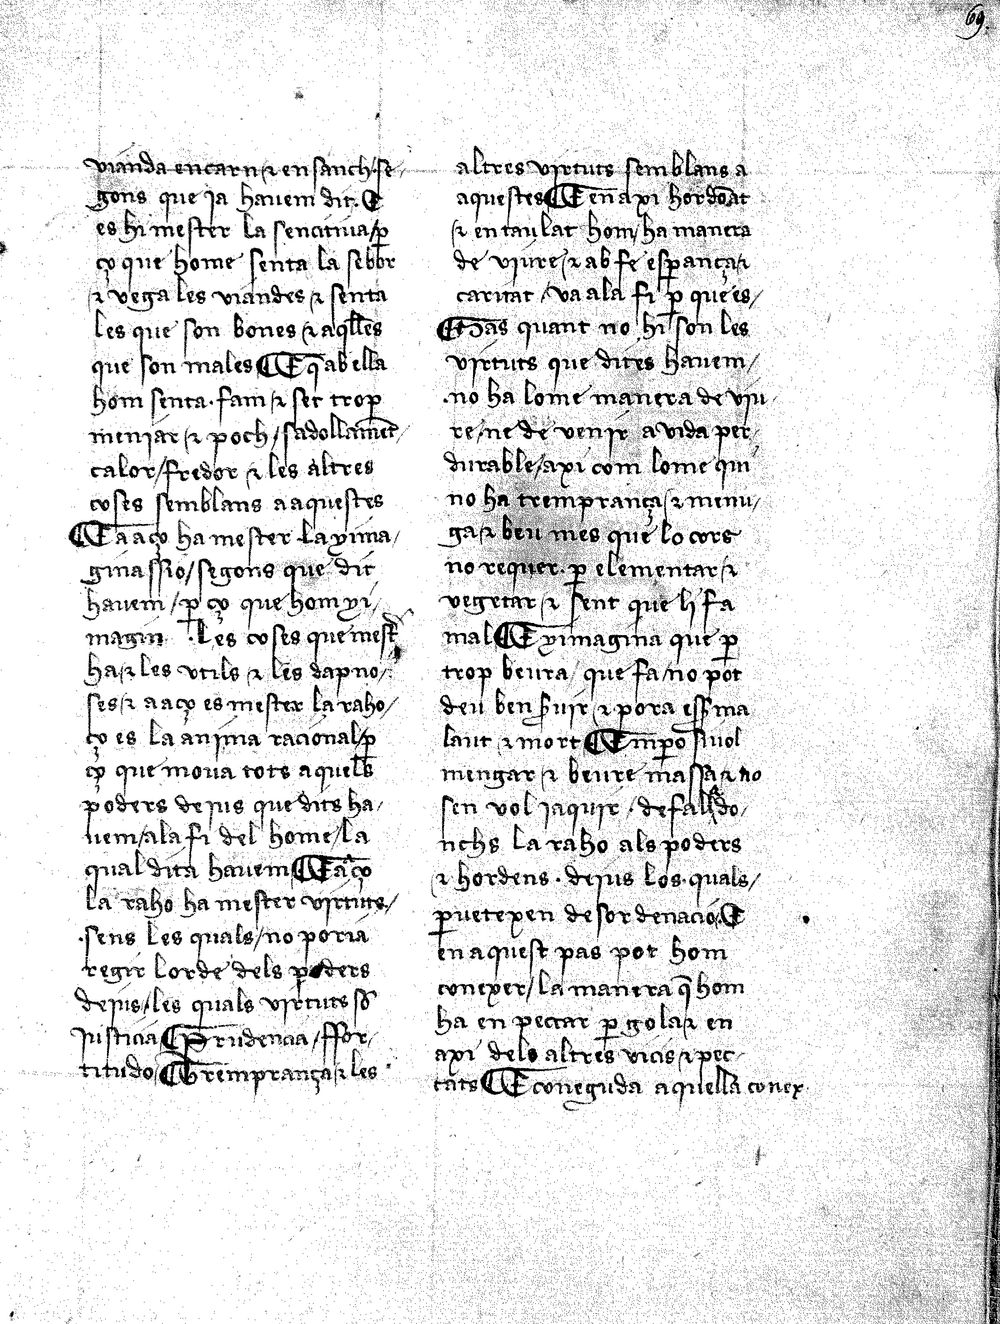 69.
vianda en carn ⁊ en sanch / se-
gons que ja hauem dit. E
es hi mester la sencitiua / ꝑ
ço que home senta la sebor
⁊ vega les viandes ⁊ senta
les que son bones ⁊ aq̃lles
que son males ¶ E q̃ ab ella
hom senta. fam ⁊ set trop
meniar ⁊ poch / sadollamẽt /
calor / fredor ⁊ les altres
coses semblans a aquestes
¶ E a aço ha mester la yima /
ginassio / segons que dit
hauem / ꝑ ço que hom yi /
magin . Les coses que mest̃
ha ⁊ les vtils ⁊ les dapno /
ses ⁊ a aço es mester la raho /
ço es la anima racional / ꝑ
ço que moua tots aquels
poders dejus que dits ha /
uem / a la fi del home / la
qual dita hauem ¶ E a ço
la raho ha mester virtuts /
.sens les quals / no poria
regir lorde dels poders
dejus / les quals virtuts so
justicia ¶ Prudencia / ffor /
titudo ¶ Tremprança ⁊ les
altres virtuts semblans a
aquestes ¶ E en axi hordõat
⁊ entaulat hom / ha manera
de viure / ⁊ ab fe esꝑança ⁊
caritat / va a la fi ꝑ que es /
¶ Mas quant no hi son les
virtuts que dites hauem /
.no ha lome manera de viu /
re / ne de venir a vida per /
durable / axi com lome qui
no ha tremprança ⁊ menu /
ga ⁊ beu mes que lo cors
no requer. ꝑ elementar ⁊
vegetar ⁊ sent que li fa
mal ¶ E yimagina que ꝑ
trop beura / que fa / no pot
deu ben s̃uir ⁊ pora ess̃ ma
laut ⁊ mort ¶ Empo si vol
mengar ⁊ beure massa ⁊ no
sen vol jaquir / defall do /
nchs la raho als poders
⁊ hordens . dejus los quals /
ꝑuetexen desordenacio. E
en aquest pas pot hom
conexer / la manera q̃ hom
ha en peccar ꝑ gola ⁊ en
axi dels altres vicis ⁊ pec-
tats ¶ E coneguda aquella conex